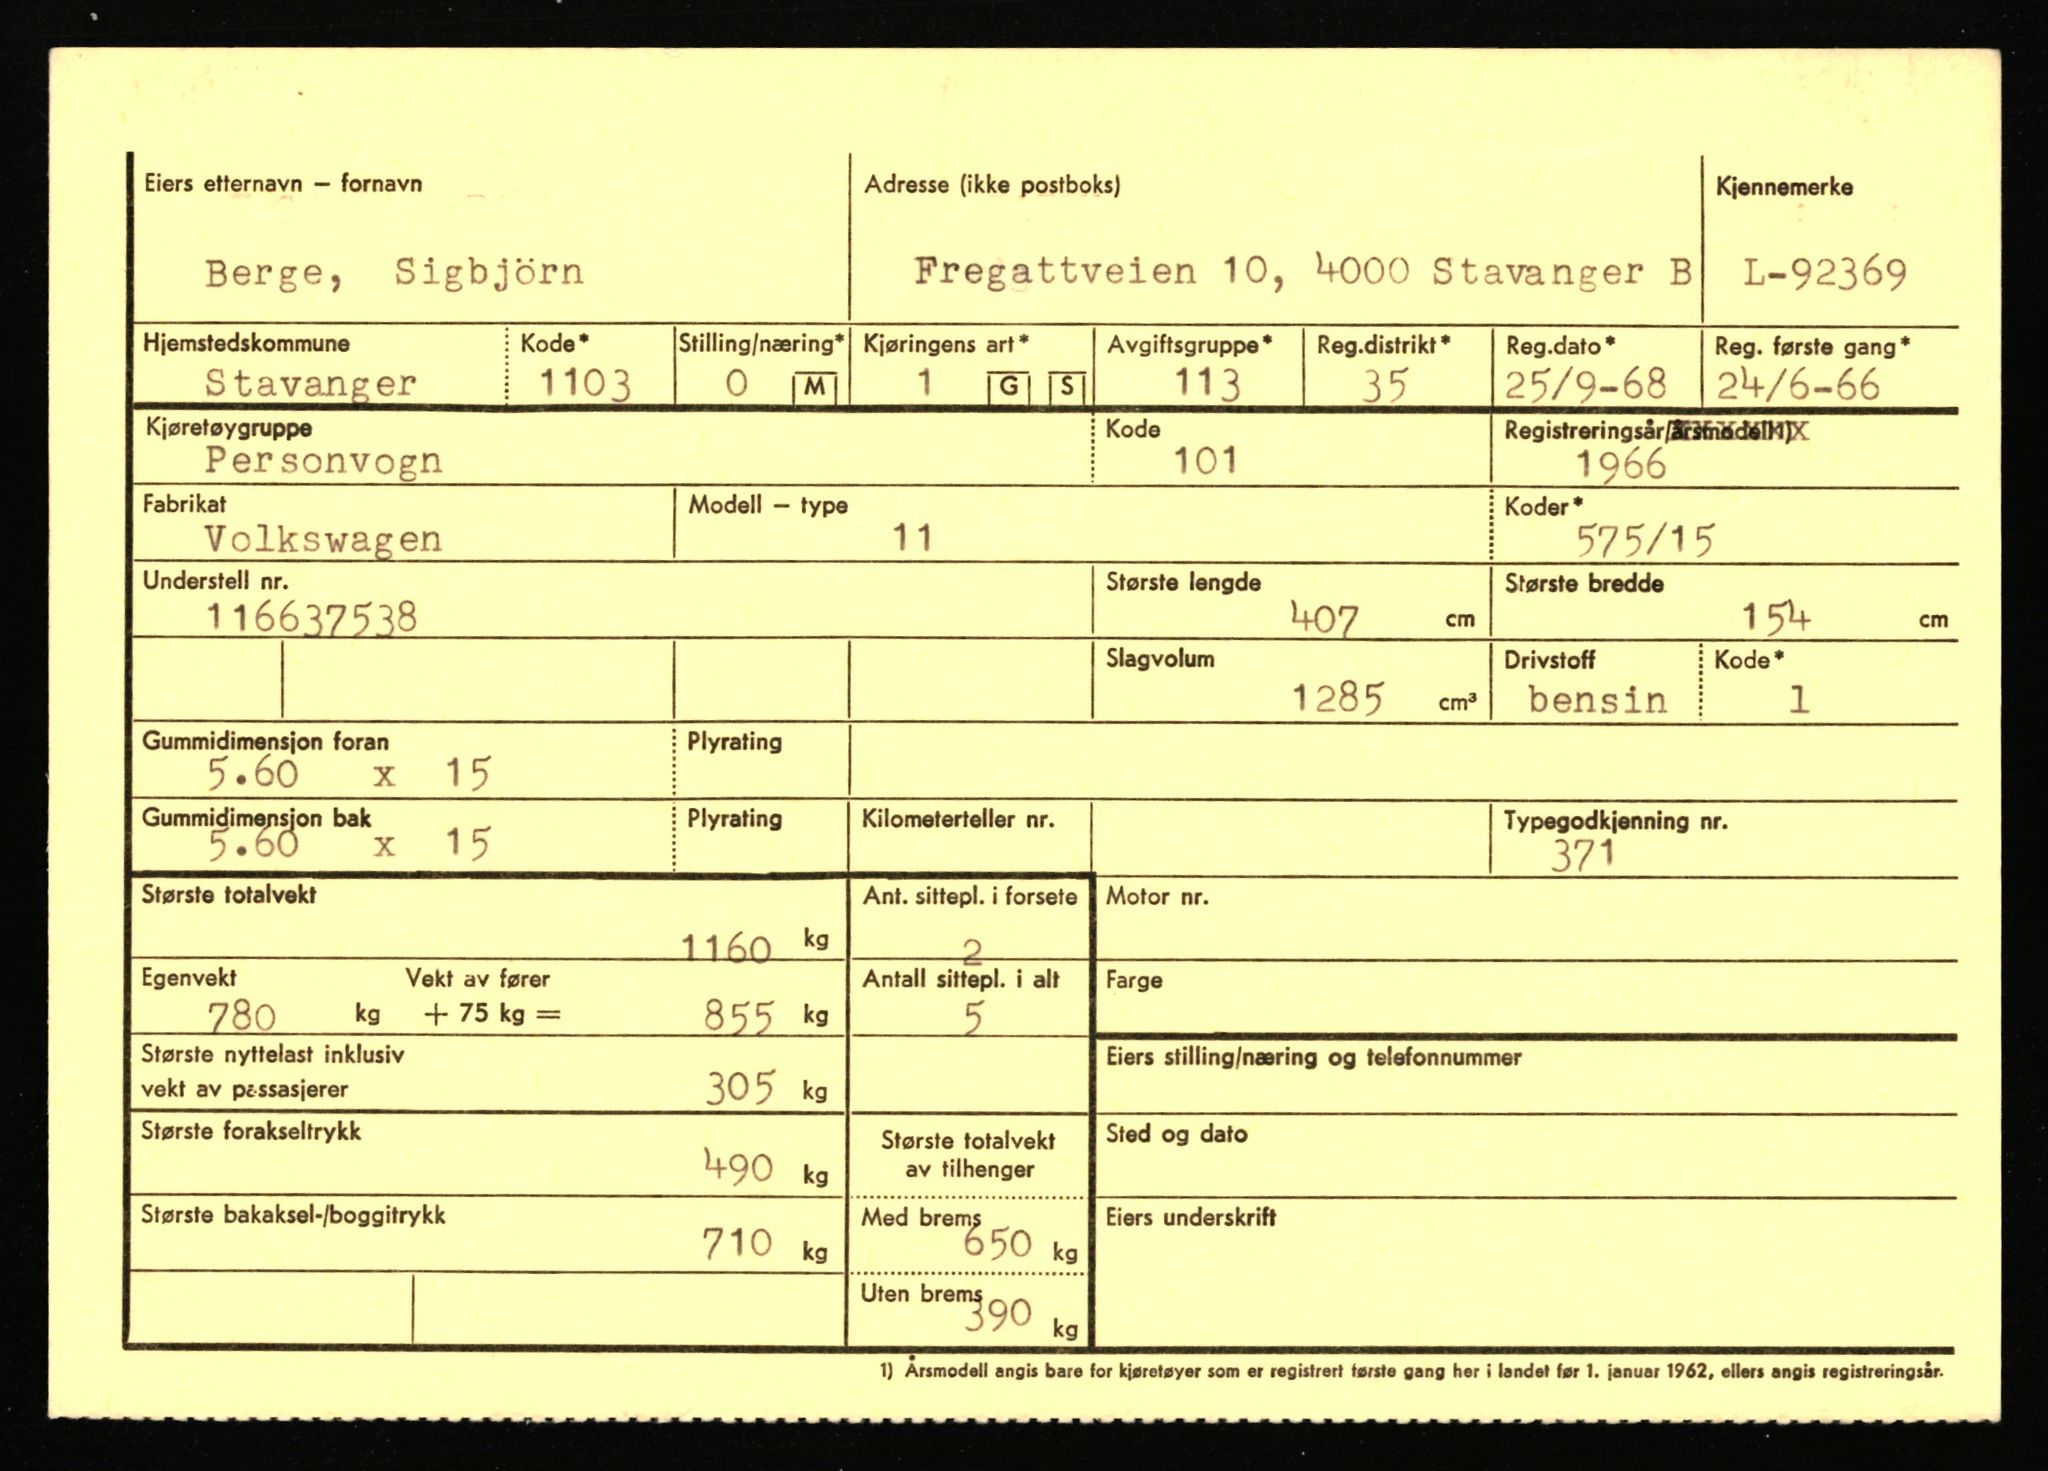 Eiers etternavn – fornavn Adresse (ikke postboks) Kjennemerke
Berge, Sigbjörn Fregattveien 10, 4000 Stavanger B L-92369
Hjemstedskommune Kode* Stilling/næring* Kjøringens art* Avgiftsgruppe* Reg.distrikt* Reg.dato* Reg. første gang*
Stavanger 1103 0 M 1 G S 113 35 25/9-68 24/6-66
Kjøretøygruppe Kode Registreringsår/årsmodell1)
Personvogn 101 1966
Fabrikat Modell – type Koder*
Volkswagen 11 575/15
Understell nr. Største lengde Største bredde
116637538 407 cm 154 cm
Slagvolum Drivstoff Kode*
1285 cm³ bensin 1
Gummidimensjon foran Plyrating
5.60 x 15
Gummidimensjon bak Plyrating Kilometerteller nr. Typegodkjenning nr.
5.60 x 15 371
Største totalvekt Ant. sittepl. i forsete Motor nr.
1160 kg 2
Egenvekt Vekt av fører Antall sittepl. i alt Farge
780 kg + 75 kg = 855 kg 5
Største nyttelast inklusiv Eiers stilling/næring og telefonnummer
vekt av passasjerer 305 kg
Største forakseltrykk Største totalvekt Sted og dato
490 kg av tilhenger
Største bakaksel-/boggitrykk Med brems Eiers underskrift
710 kg 650 kg
Uten brems
390 kg
1) Årsmodell angis bare for kjøretøyer som er registrert første gang her i landet før 1. januar 1962, ellers angis registreringsår.